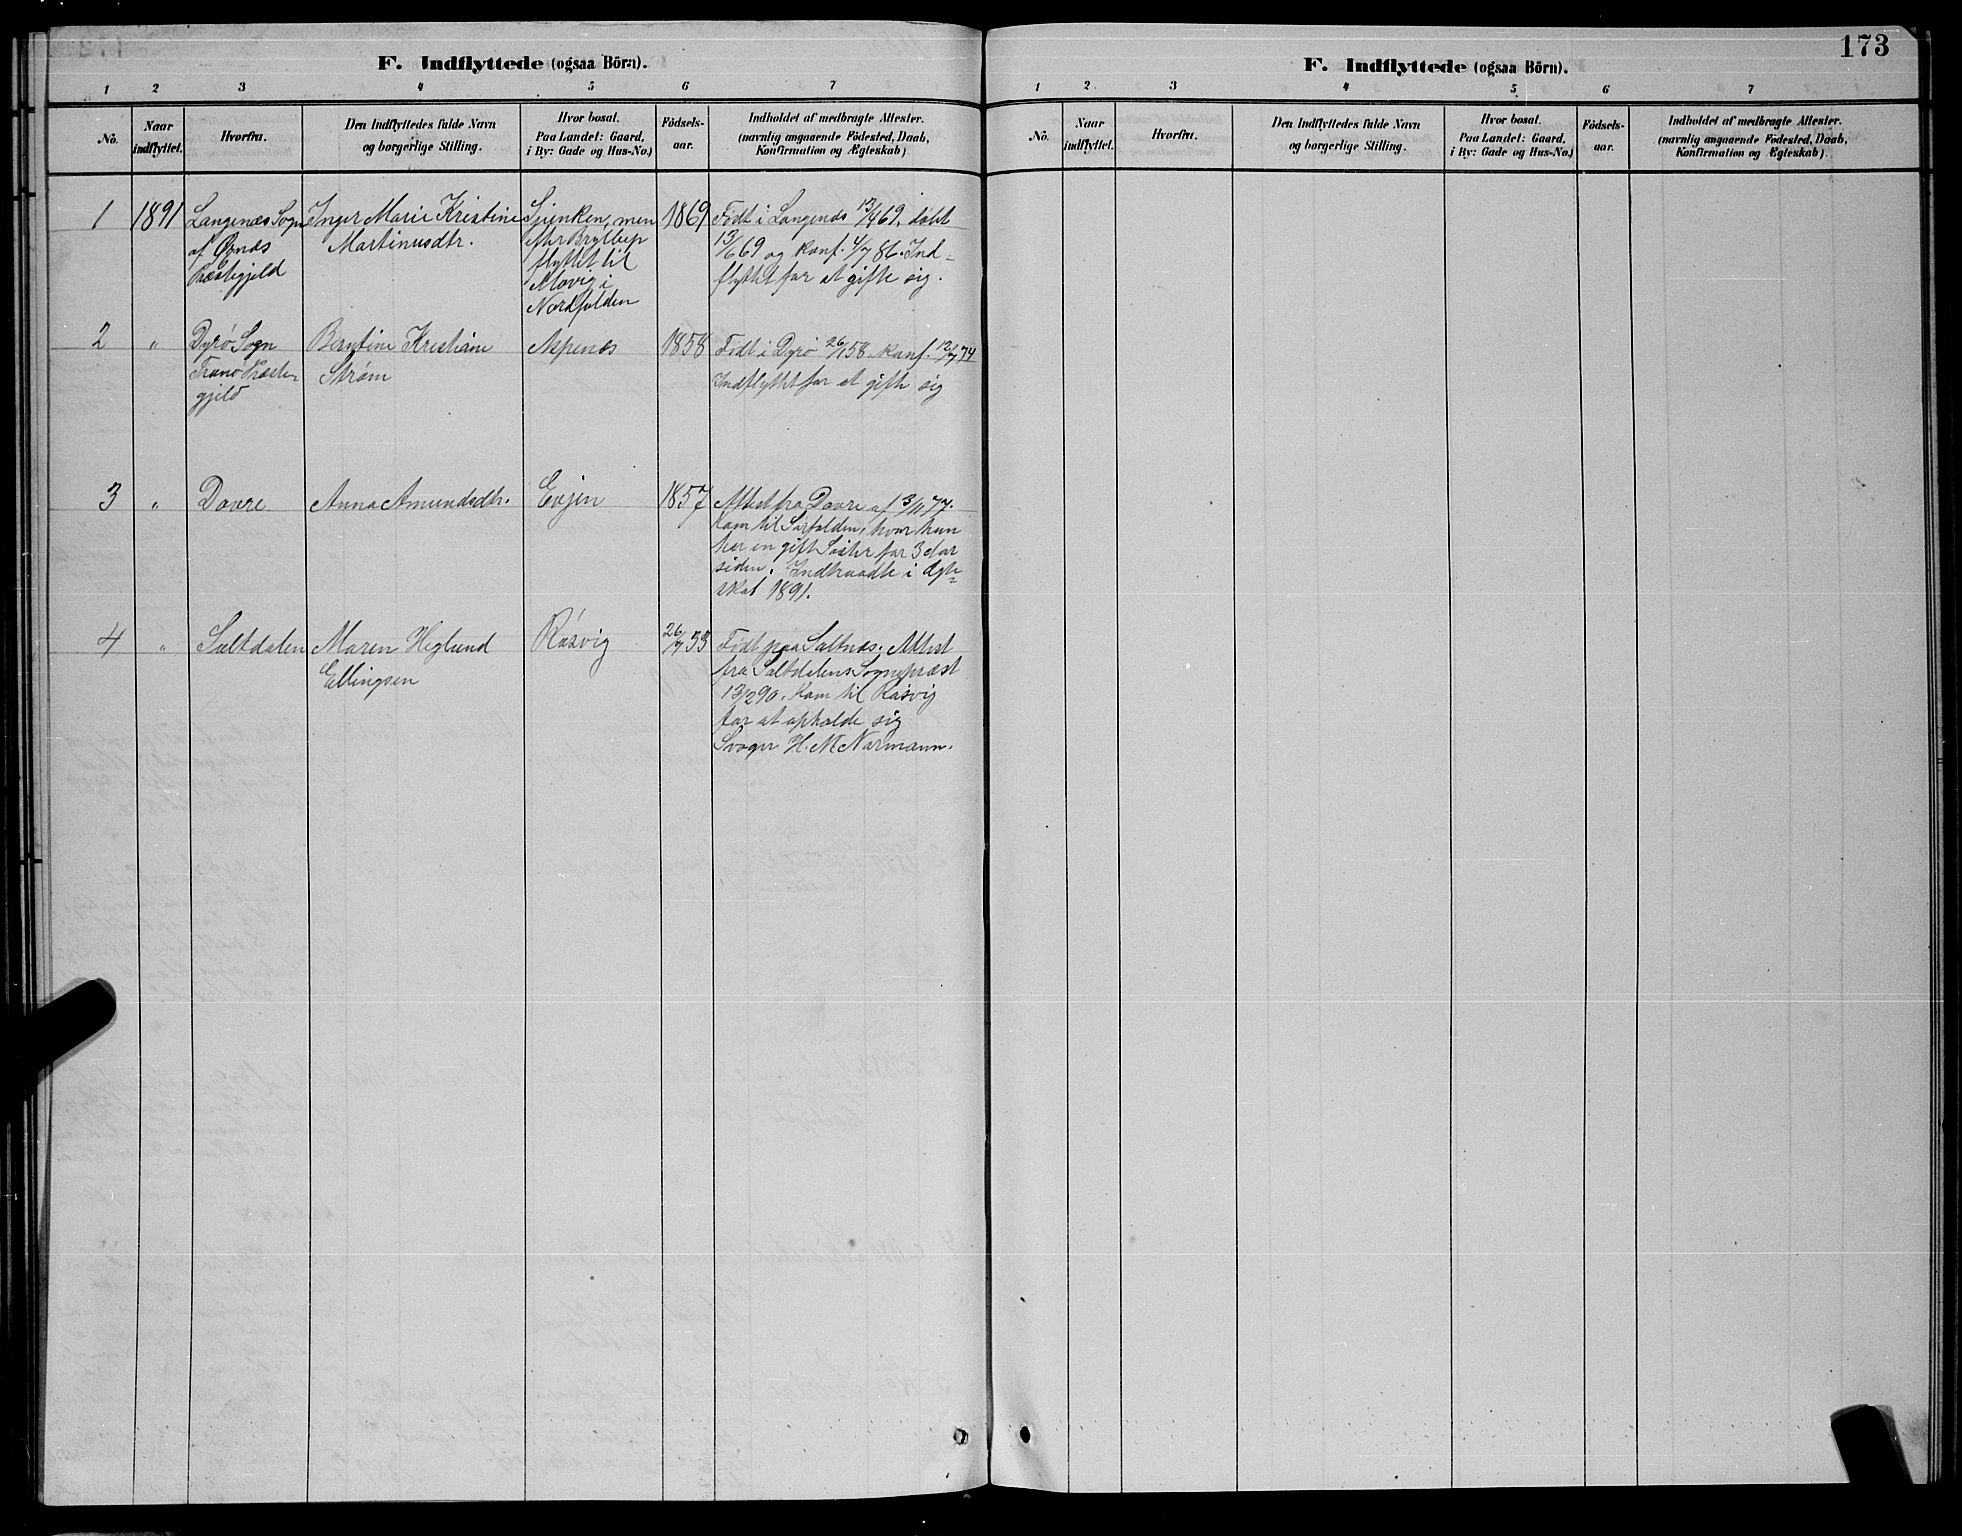 173
F. Indflyttede (ogsaa Börn).
1 2 3 4 5 6 7
No.
Naar
indflyttet.
Hvorfra.
Den Indflyttedes fulde Navn
og borgerlige Stilling.
Hvor bosat.
Paa Landet: Gaard,
i By: Gade og Hus-No.)
Födsels-
aar.
Indholdet af medbragte Attester.
(navnlig angaaende Födested, Daab,
Konfirmation og Ægteskab)
1
1891
Langenæs Sogn
af Øxnæs
Præstegjeld
Inger Marie Kristine
Martinusdtr.
men
efter Bryllup
flyttet til
i
Nordfolden
1869
Født i Langenæs 12/4 69, døbt
13/6 69 og konf. 4/7 86. Ind-
flyttet for at gifte sig.
2
"
Dyrö Sogn
Tranø Præste-
gjeld
Berntine Kristiane
Strøm
Aspenæs
1858
Født i Dyrö 26/1 58. konf. 12/7 74
Indflyttet for at gifte sig
3
"
Dovre
Anna Amundsdtr.
Evjen
1857
Attest fra Dovre af 13/11 77.
Kom til Sörfolden, hvor hun
har en gift Söster for 3 Aar
siden. Indtraadte i Ægte-
skab 1891.
4
"
Saltdalen
Maren Heglund
Ellingsen
Røsvig
26/7 33
Født paa Saltnæs. Attest
fra Saltdalens Sognepræst
13/2 90. Kom til Røsvig
for at opholde sig
Svoger H. M Normann.
F. Indflyttede (ogsaa Börn).
1 2 3 4 5 6 7
No.
Naar
indflyttet.
Hvorfra.
Den Indflyttedes fulde Navn
og borgerlige Stilling.
Hvor bosat.
Paa Landet: Gaard,
i By: Gade og Hus-No.)
Födsels-
aar.
Indholdet af medbragte Attester.
(navnlig angaaende Födested, Daab,
Konfirmation og Ægteskab)